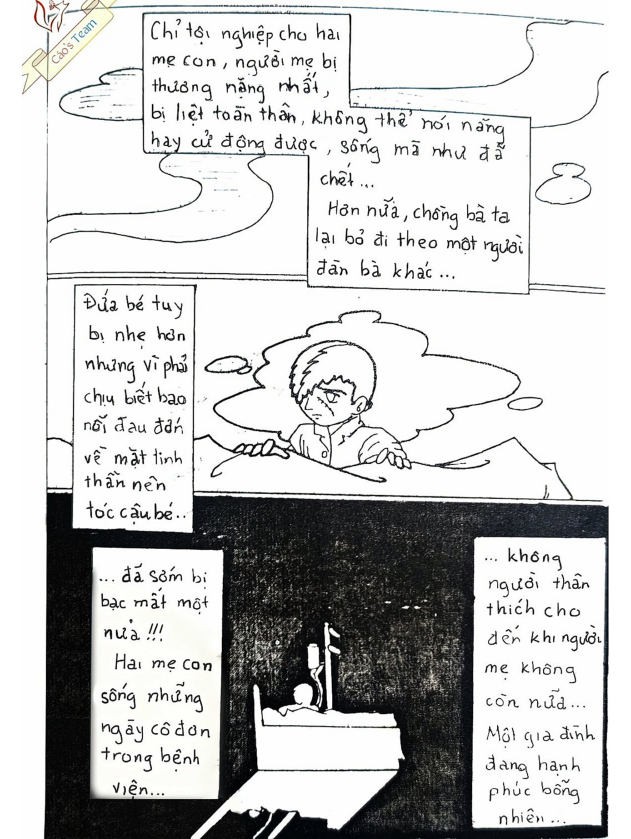 Cáo's Team
Chỉ tội nghiệp cho hai
mẹ con, người mẹ bị
thương nặng nhất,
bị liệt toàn thân, không thể nói năng
hay cử động được, sống mà như đã
chết...
Hơn nữa, chồng bà ta
lại bỏ đi theo một người
đàn bà khác...
Đứa bé tuy
bị nhẹ hơn
nhưng vì phải
chịu biết bao
nỗi đau đớn
về mặt tinh
thần nên
tóc cậu bé..
... đã sớm bị
bạc mất một
nửa !!!
Hai mẹ con
sống những
ngày cô đơn
trong bệnh
viện...
... không
người thân
thích cho
đến khi người
mẹ không
còn nữa...
Một gia đình
đang hạnh
phúc bỗng
nhiên ...